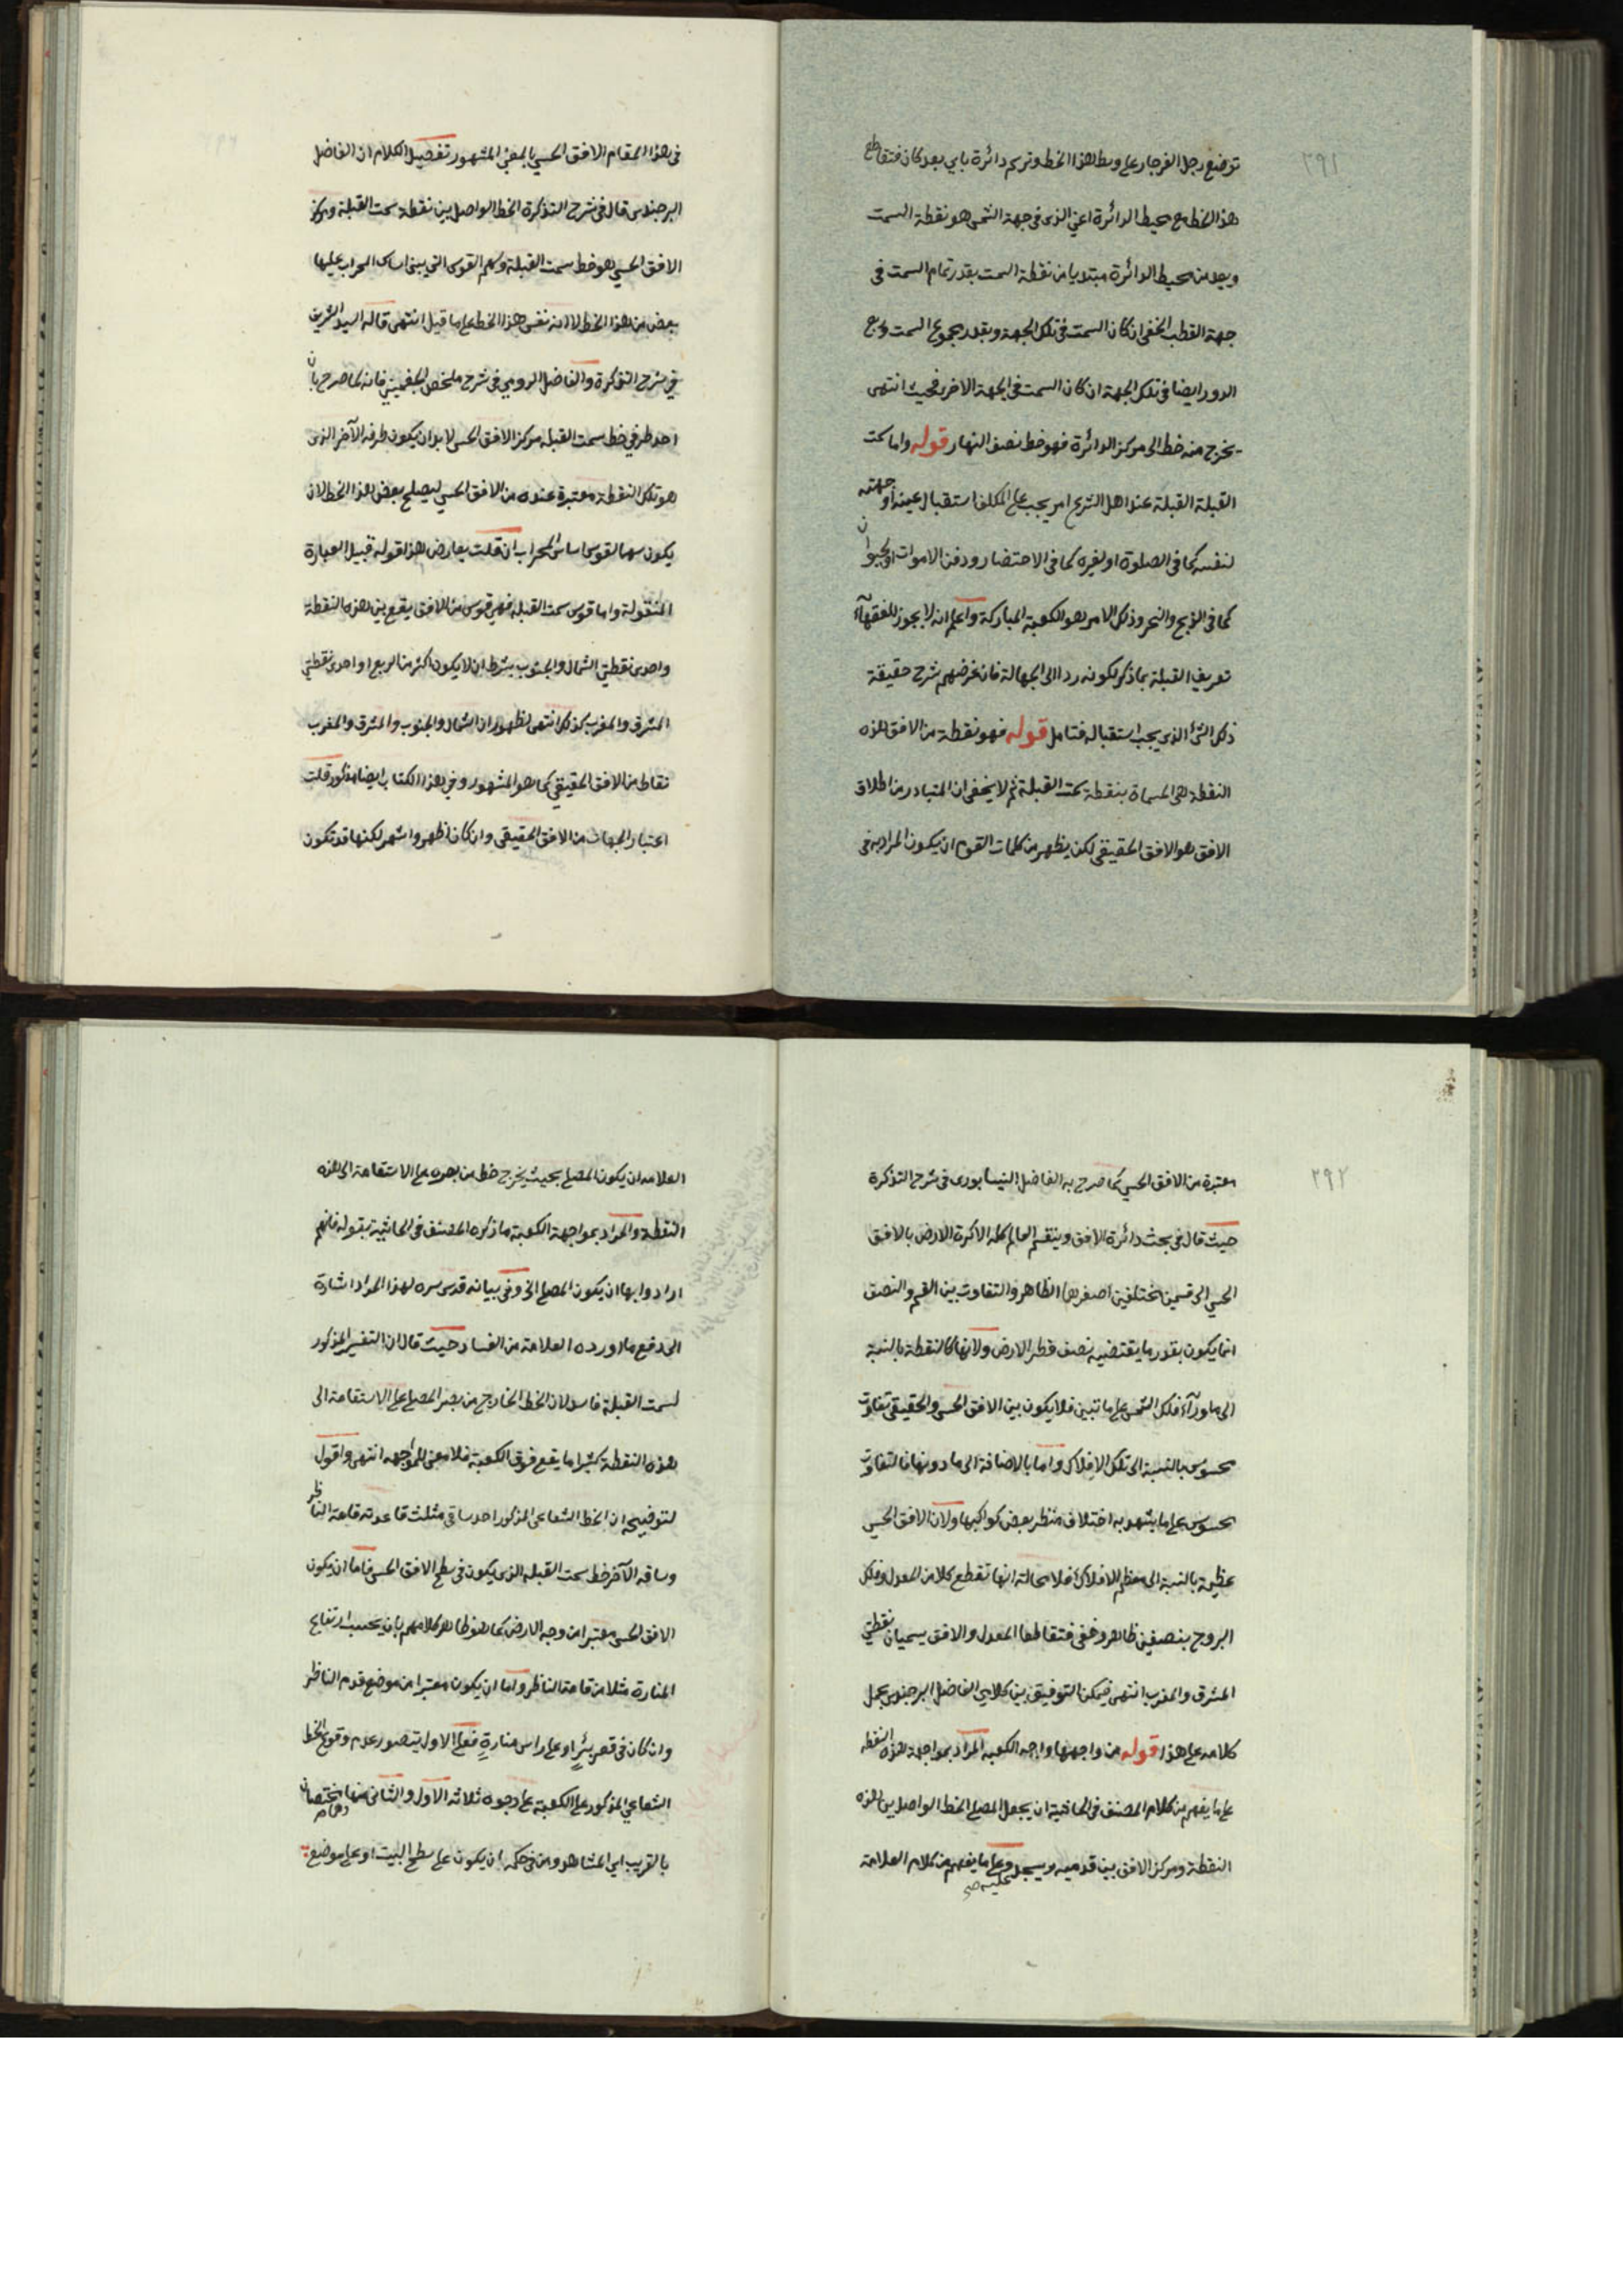 ٢٩١
توضع رجل الفرجار على وسط هذا الخط وترسم دائرة باي بعد كان فتقاطع
هذا الخط مع محيط الدائرة اعني الذي في جهة الشمس هو نقطة السمت
ويعد من محيط الدائرة مبتديا من نقطة السمت بقدر تمام السمت في
جهة القطب الخفي ان كان السمت في تلك الجهة وبقدر مجموع السمت وربع
الدور ايضا في تلك الجهة ان كان السمت في الجهة الاخرى فحيث انتهى
يخرج منه خط الى مركز الدائرة فهو خط نصف النهار قوله واما سمت
القبلة القبلة عند اهل الشرع امر يجب على المكلف استقبال عينه او جهته
لنفسه كما في الصلوة او لغيره كما في الاحتضار ودفن الاموات او الحيوان
كما في الذبح والنحر وذلك الامر هو الكعبة المباركة واعلم انه لا يجوز للفقهآء
تعريف القبلة بما ذكر لكونه ردا الى الجهالة فان غرضهم شرح حقيقة
ذلك الشئ الذي يجب استقباله فتامل قوله فهو نقطة من الافق هذه
النقطة هي المسماة بنقطة سمت القبلة ثم لا يخفى ان المتبادر من اطلاق
الافق هو الافق الحقيقي لكن يظهر من كلمات القوم ان يكون المراد به في
في هذا المقام الافق الحسي بالمعنى المشهور تفصيل الكلام ان الفاضل
البرجندي قال في شرح التذكرة الخط الواصل بين نقطة سمت القبلة ومركز
الافق الحسي هو خط سمت القبلة وسهم القوس التي يبنى اساس المحراب عليها
بعض من هذا الخط لا انه نفس هذا الخط على ما قيل انتهى قاله السيد الشريف
في شرح التذكرة والفاضل الرومي في شرح ملخص الجغميني فانه لما صرح بان
احد طرفي خط سمت القبلة مركز الافق الحسي لا بد ان يكون طرفه الآخر الذي
هو تلك النقطة معتبرة عنده من الافق الحسي ليصلح بعض هذا الخط لان
يكون سهما لقوس اساس المحراب ان قلت يعارض هذا قوله قبيل العبارة
المنقولة واما قوس سمت القبلة فهي قوس من الافق يقع بين هذه النقطة
واحدى نقطتي الشمال والجنوب بشرط ان لا يكون اكثر من الربع او احدى نقطتي
المشرق والمغرب كذلك انتهى لظهور ان الشمال والجنوب والمشرق والمغرب
نقاط من الافق الحقيقي كما هو المشهور وفي هذا الكتاب ايضا مذكور قلت
اعتبار الجهات من الافق الحقيقي وان كان اظهر واشهر لكنها قد تكون
٢٩٢
معتبرة من الافق الحسي كما صرح به الفاضل النيسابوري في شرح التذكرة
حيث قال في بحث دائرة الافق وينقسم العالم كله الا كرة الارض بالافق
الحسي الى قسمين مختلفين اصغرهما الظاهر والتفاوت بين القسم والنصف
انما يكون بقدر ما يقتضيه نصف قطر الارض ولانها كالنقطة بالنسبة
الى ما ورآء فلك الشمس على ما تبين فلا يكون بين الافق الحسي والحقيقي تفاوت
محسوس بالنسبة الى تلك الافلاك واما بالاضافة الى ما دونها فالتفاوت
محسوس على ما يشهد به اختلاف منظر بعض كواكبها ولان الافق الحسي
عظيمة بالنسبة الى معظم الافلاك فلا محالة انها تقطع كلا من المعدل وفلك
البروج بنصفين ظاهر وخفي فتقاطعا المعدل والافق يسميان نقطتي
المشرق والمغرب انتهى فيمكن التوفيق بين كلامي الفاضل البرجندي بحمل
كلامه على هذا قوله من واجهها واجه الكعبة المراد بمواجهة هذه النقطة
على ما يفهم من كلام المصنف في الحاشية ان يجعل المصلي الخط الواصل بين هذه
النقطة ومركز الافق بين قدميه ويسجد عليه صح وعلى ما يفهم من كلام العلامة
العلامة ان يكون المصلي بحيث يخرج خط من بصره على الاستقامة الى هذه
النقطة والمراد بمواجهة الكعبة ما ذكره المصنف في الحاشية بقوله فانهم
ارادوا بها ان يكون المصلي الخ وفي بيانه قدس سره لهذا المراد اشارة
الى دفع ما اورده العلامة من الفساد حيث قال ان التفسير المذكور
لسمت القبلة فاسد لان الخط الخارج من بصر المصلي على الاستقامة الى
هذه النقطة كثيرا ما يقع فوق الكعبة فلا معنى للمواجهه انتهى واقول
لتوضيحه ان الخط الشعاعي المذكور احد ساقي مثلث قاعدته قامة الناظر
وساقه الآخر خط سمت القبلة الذي يكون في سطح الافق الحسي فاما ان يكون
الافق الحسي معتبرا من وجه الارض كما هو ظاهر كلامهم بان يحسب ارتفاع
المنارة مثلا من قامة الناظر واما ان يكون معتبرا من موضع قدم الناظر
وان كان في قعر بئر او على راس منارة فعلى الاول يتصور عدم وقوع الخط
الشعاعي المذكور على الكعبة على وجوه ثلاثة الاول والثاني منها مختصان
بالقريب اي المشاهد ومن في حكمه ان يكون على سطح البيت او على موضع